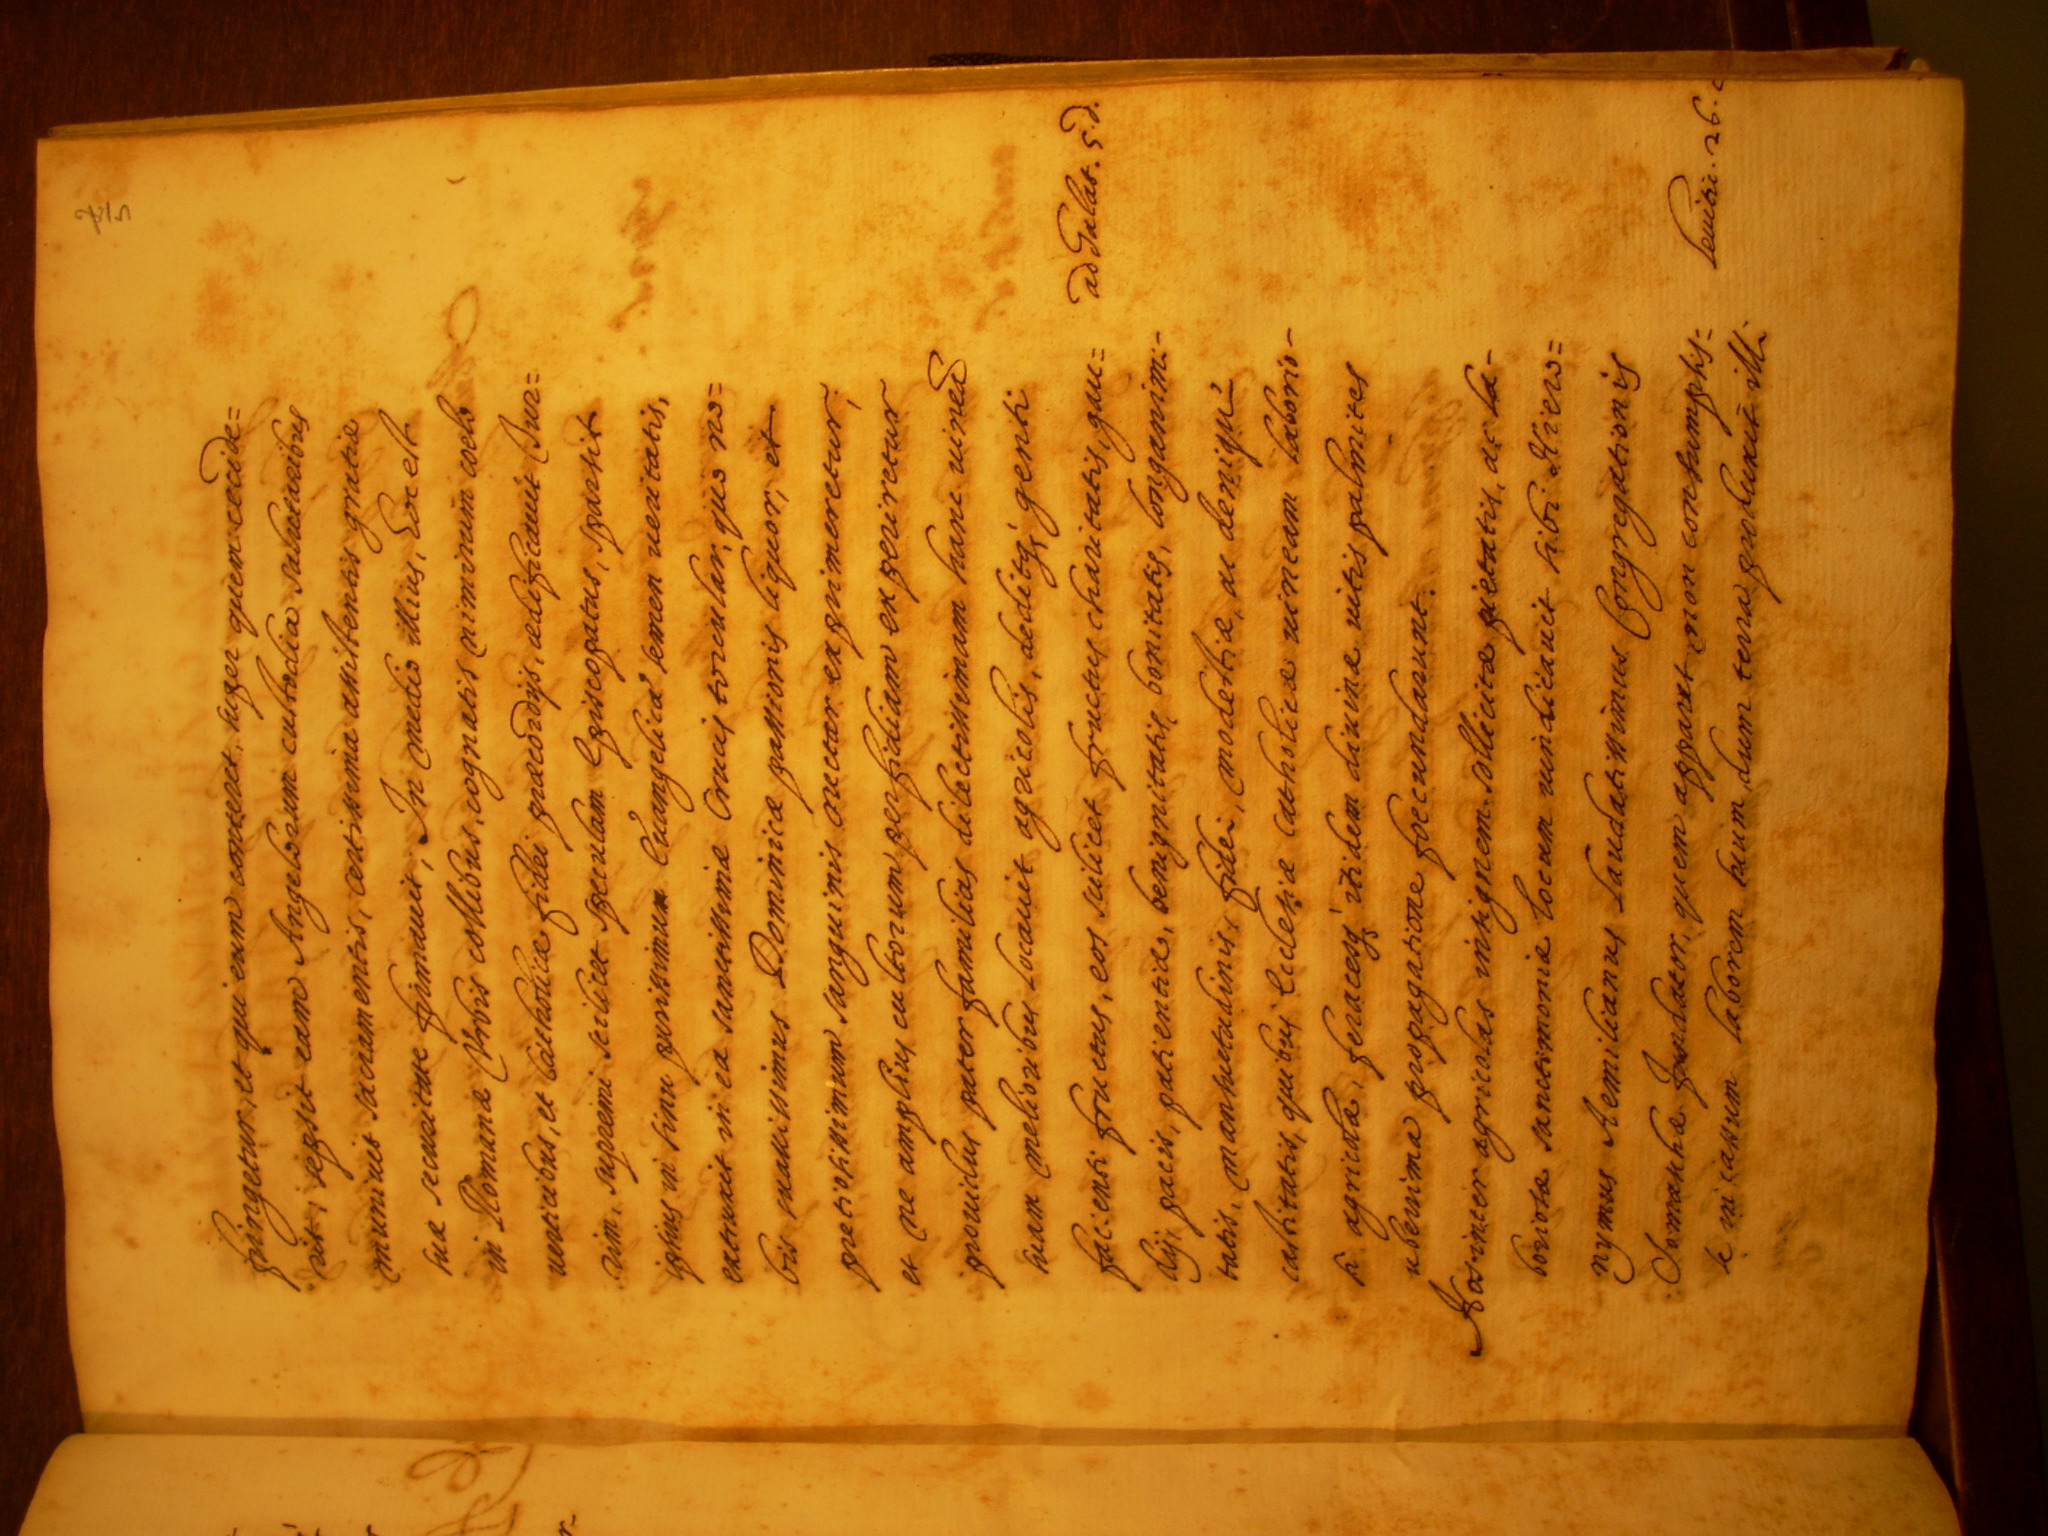 fringetur, et qui eum conteret, super quem cecide=
rit, sepsit eam Angelorum custodia salutaribus
muniuit sacramentis, certissima assistentis gratiæ
suæ securitate firmauit, In medio illius, hoc est
in Romanæ Vrbis collibus, cognatis nimirum coelo
uerticibus, et Catholicæ fidei præcordijs, ædificauit Tur=
rim, supremi scilicet speculam Episcopatus, sparsit
ipsius in sinu purissimum Euangelicæ semen ueritatis,
extruxit in ea sanctissimæ Crucis torcular, quo no=
bis suauissimus Dominicæ passionis liquor, et
pretiosissimum sanguinis nectar exprimeretur;
et ne amplius cultorum perfidiam experiretur
prouidus pater familias dilectissimam hanc uineã
suam melioribus locauit agricolis, deditq; genti
facienti fructus, eos scilicet fructus charitatis, gau=
dij, pacis, patientiæ, benignitatis, bonitatis, longanimi-
tatis, mansuetudinis, fidei, modestiæ, ac deniq;
castitatis, quibus Ecclesiæ Catholicæ uineam laborio-
si agricolæ, feracesq; itidem diuinæ uitis palmites
uberrima propagatione foecundarunt.
Hos inter agricolas insignem sollicitæ pietatis, ac la-
boriosæ sanctimoniæ locum uindicauit sibi Hiero=
nymus Aemilianus laudatissimus Congregationis
Somaschæ fundator, quem apparet non consumpsis=
se in casum laborem suum, dum terra produxit illi
ad Galat. 5. d.
Leuiti. 26. c